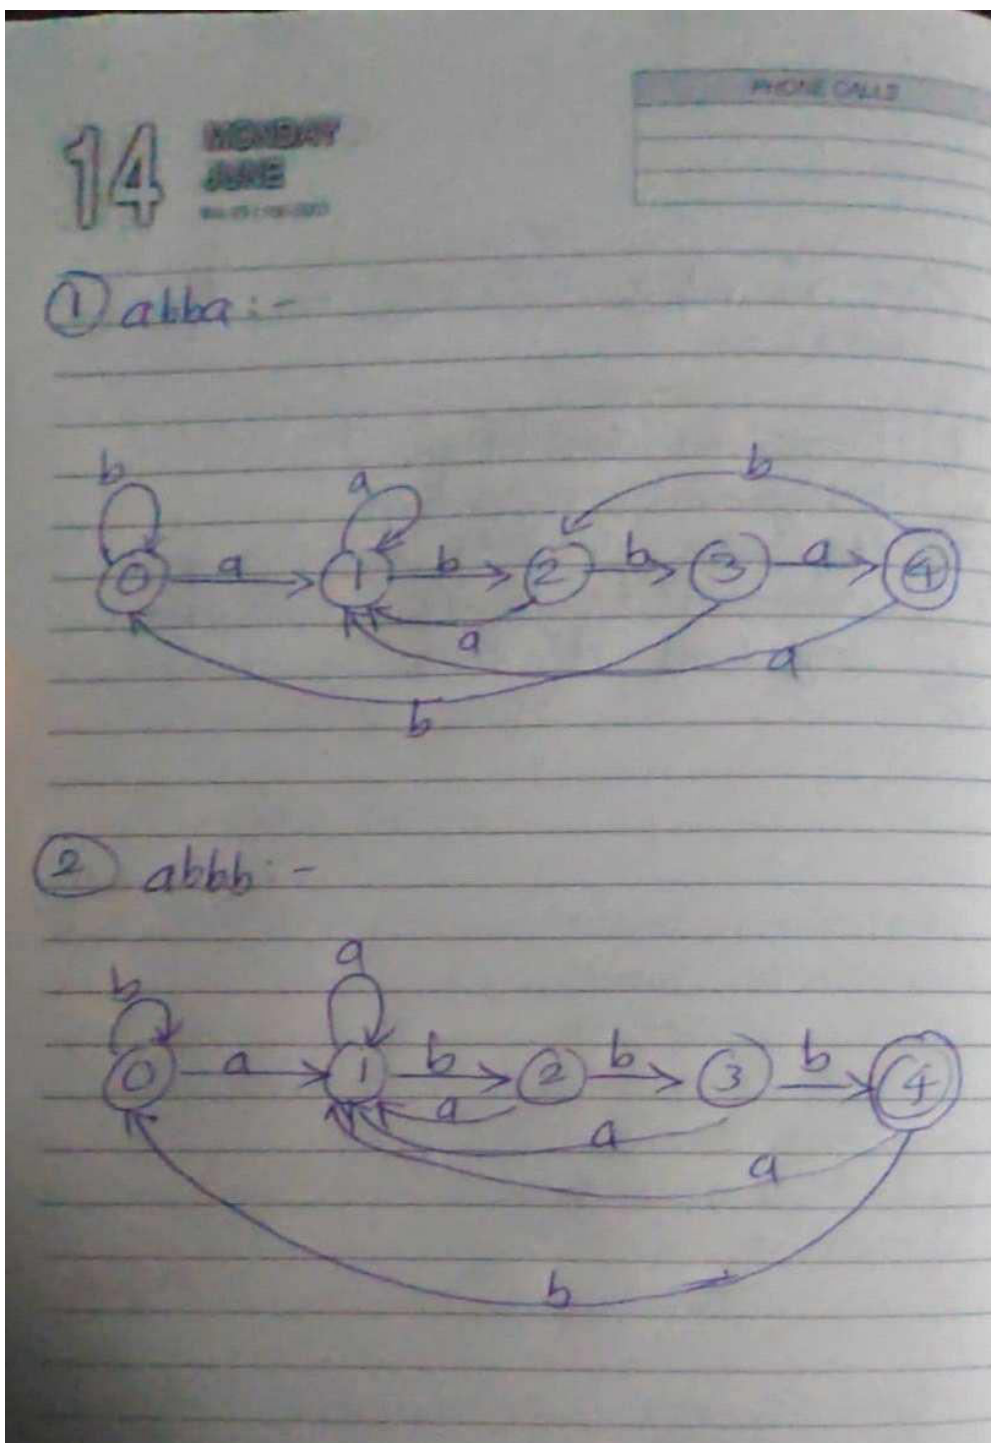 PHONE CALLS
14 MONDAY
JUNE
① abba :-
b a b
0 a 1 b 2 b 3 a 4
a a
b
② abbb :-
a
b
0 a 1 b 2 b 3 b 4
a a a
b